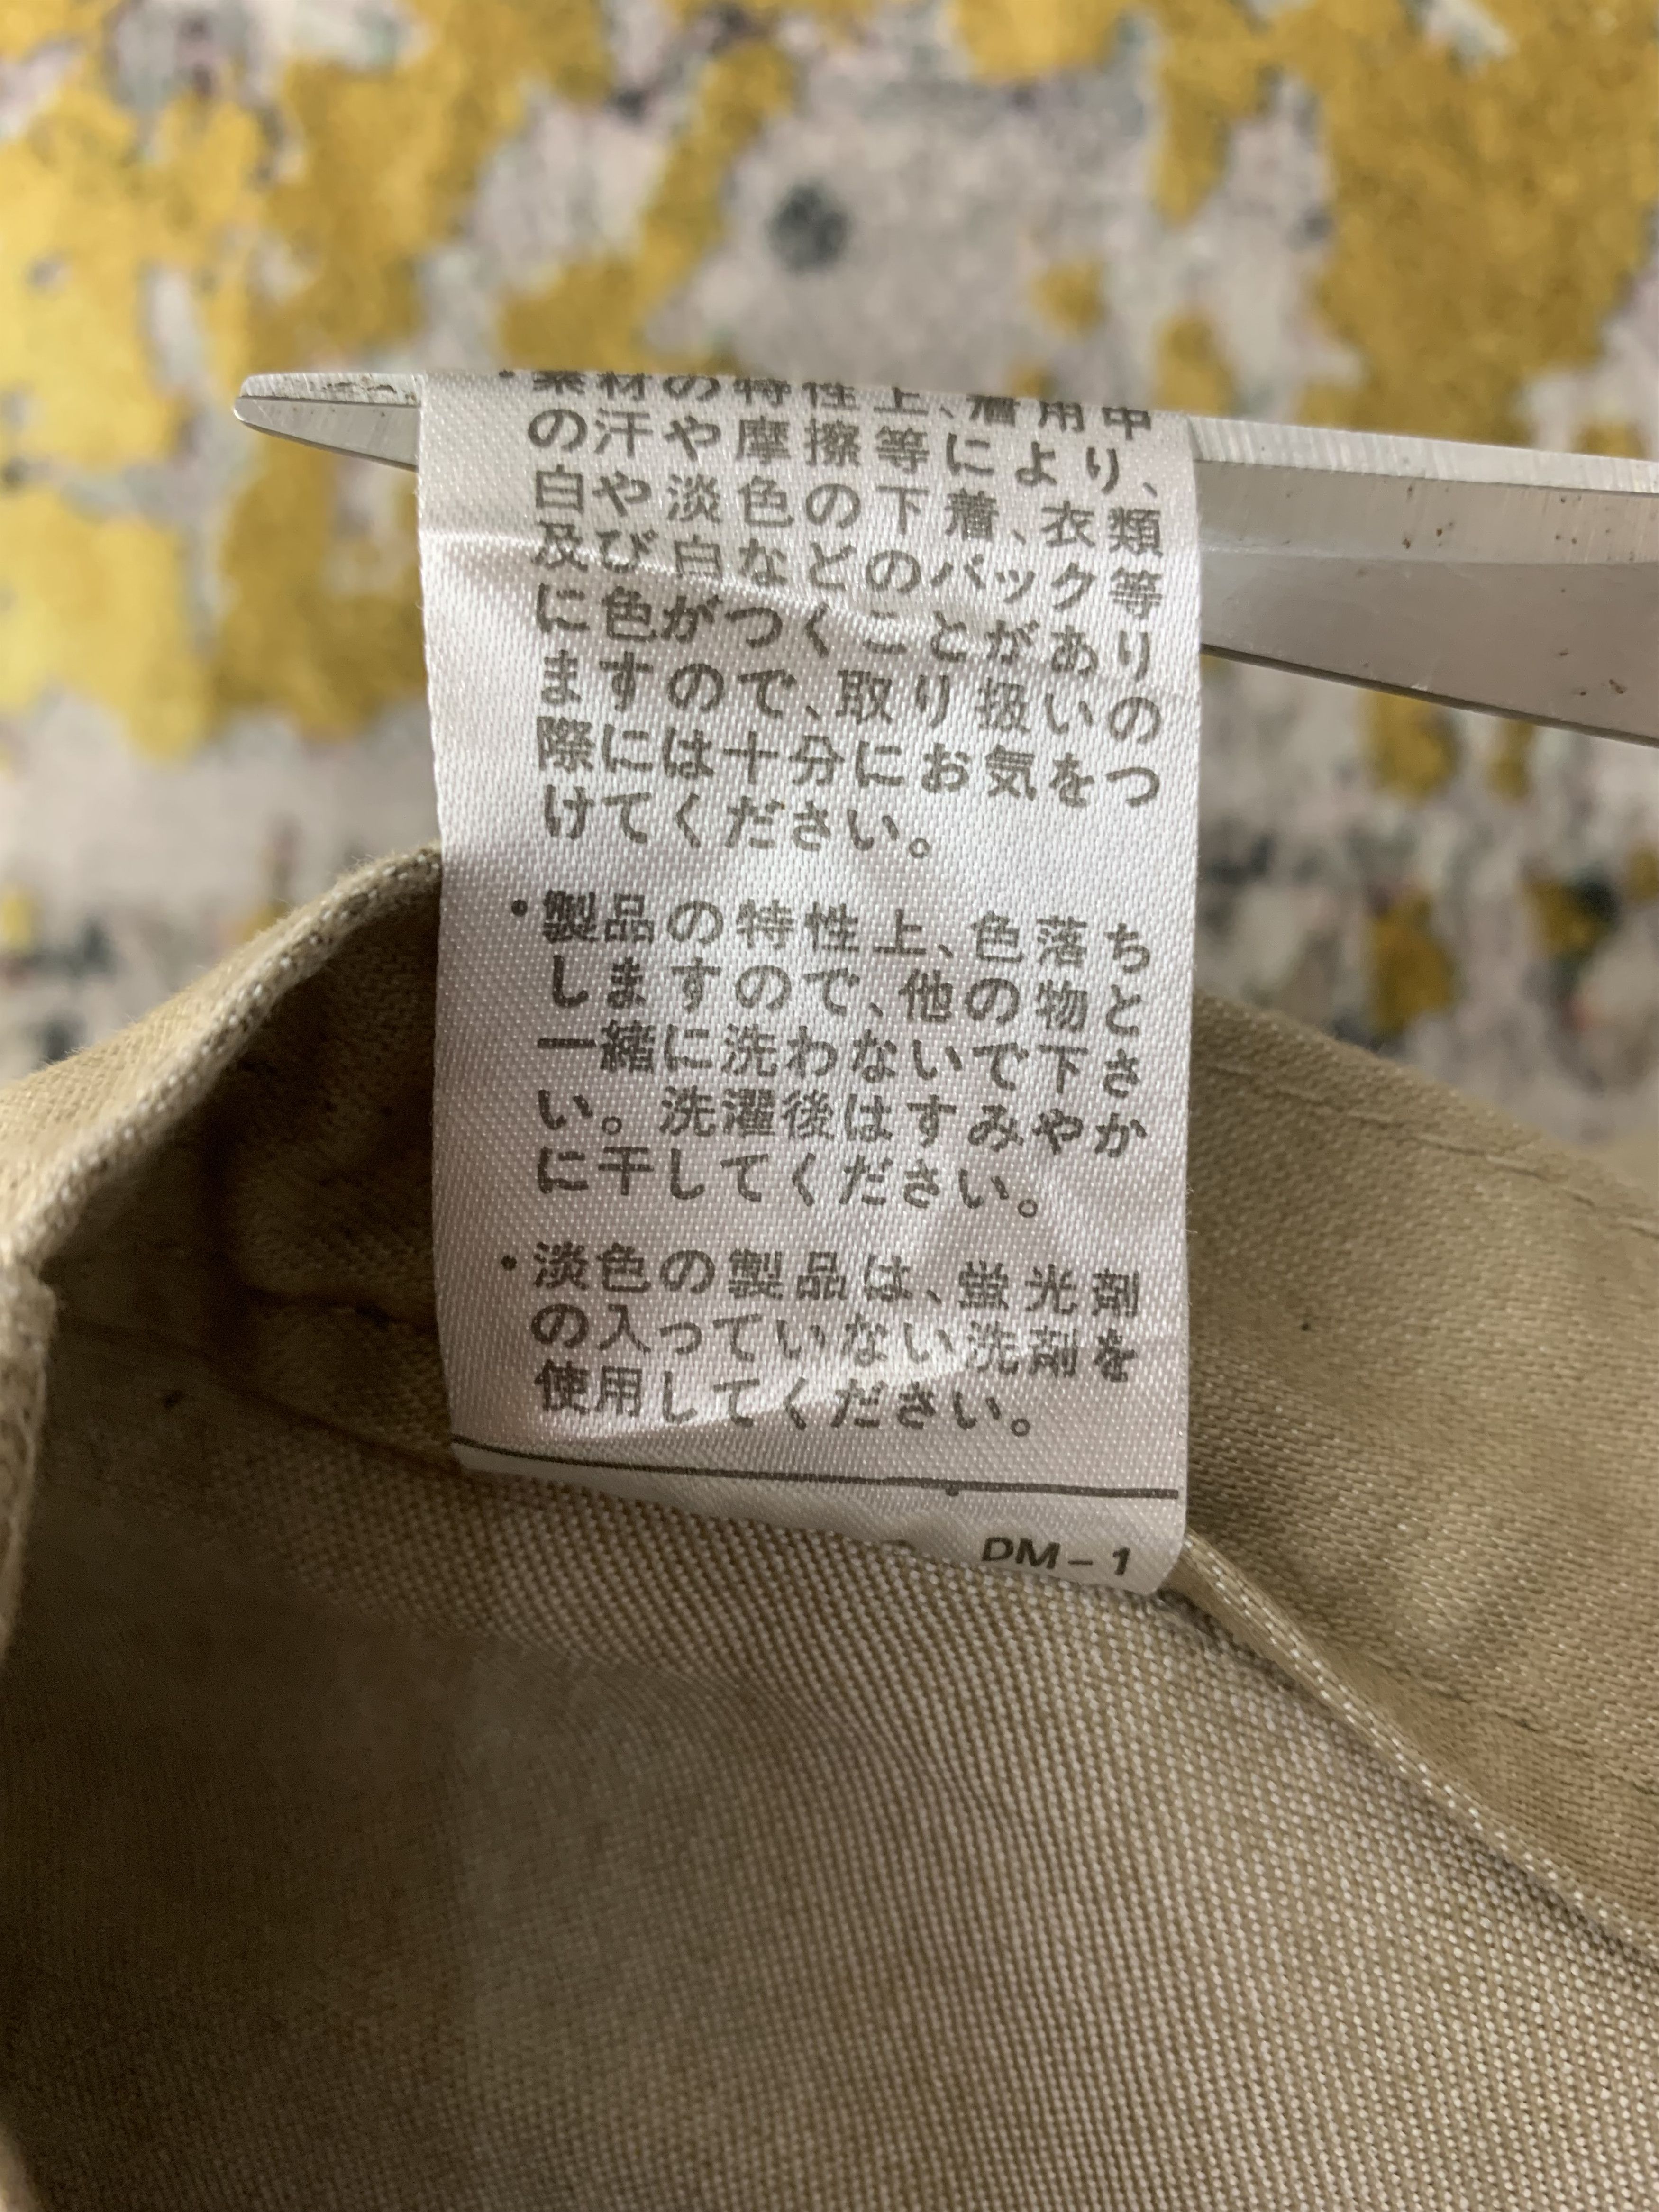 ・素材の特性上、着用中
の汗や摩擦等により、
白や淡色の下着、衣類
及び白などのバック等
に色がつくことがあり
ますので、取り扱いの
際には十分にお気をつ
けてください。
・製品の特性上、色落ち
しますので、他の物と
一緒に洗わないで下さ
い。洗濯後はすみやか
に干してください。
・淡色の製品は、蛍光剤
の入っていない洗剤を
使用してください。
DM-1